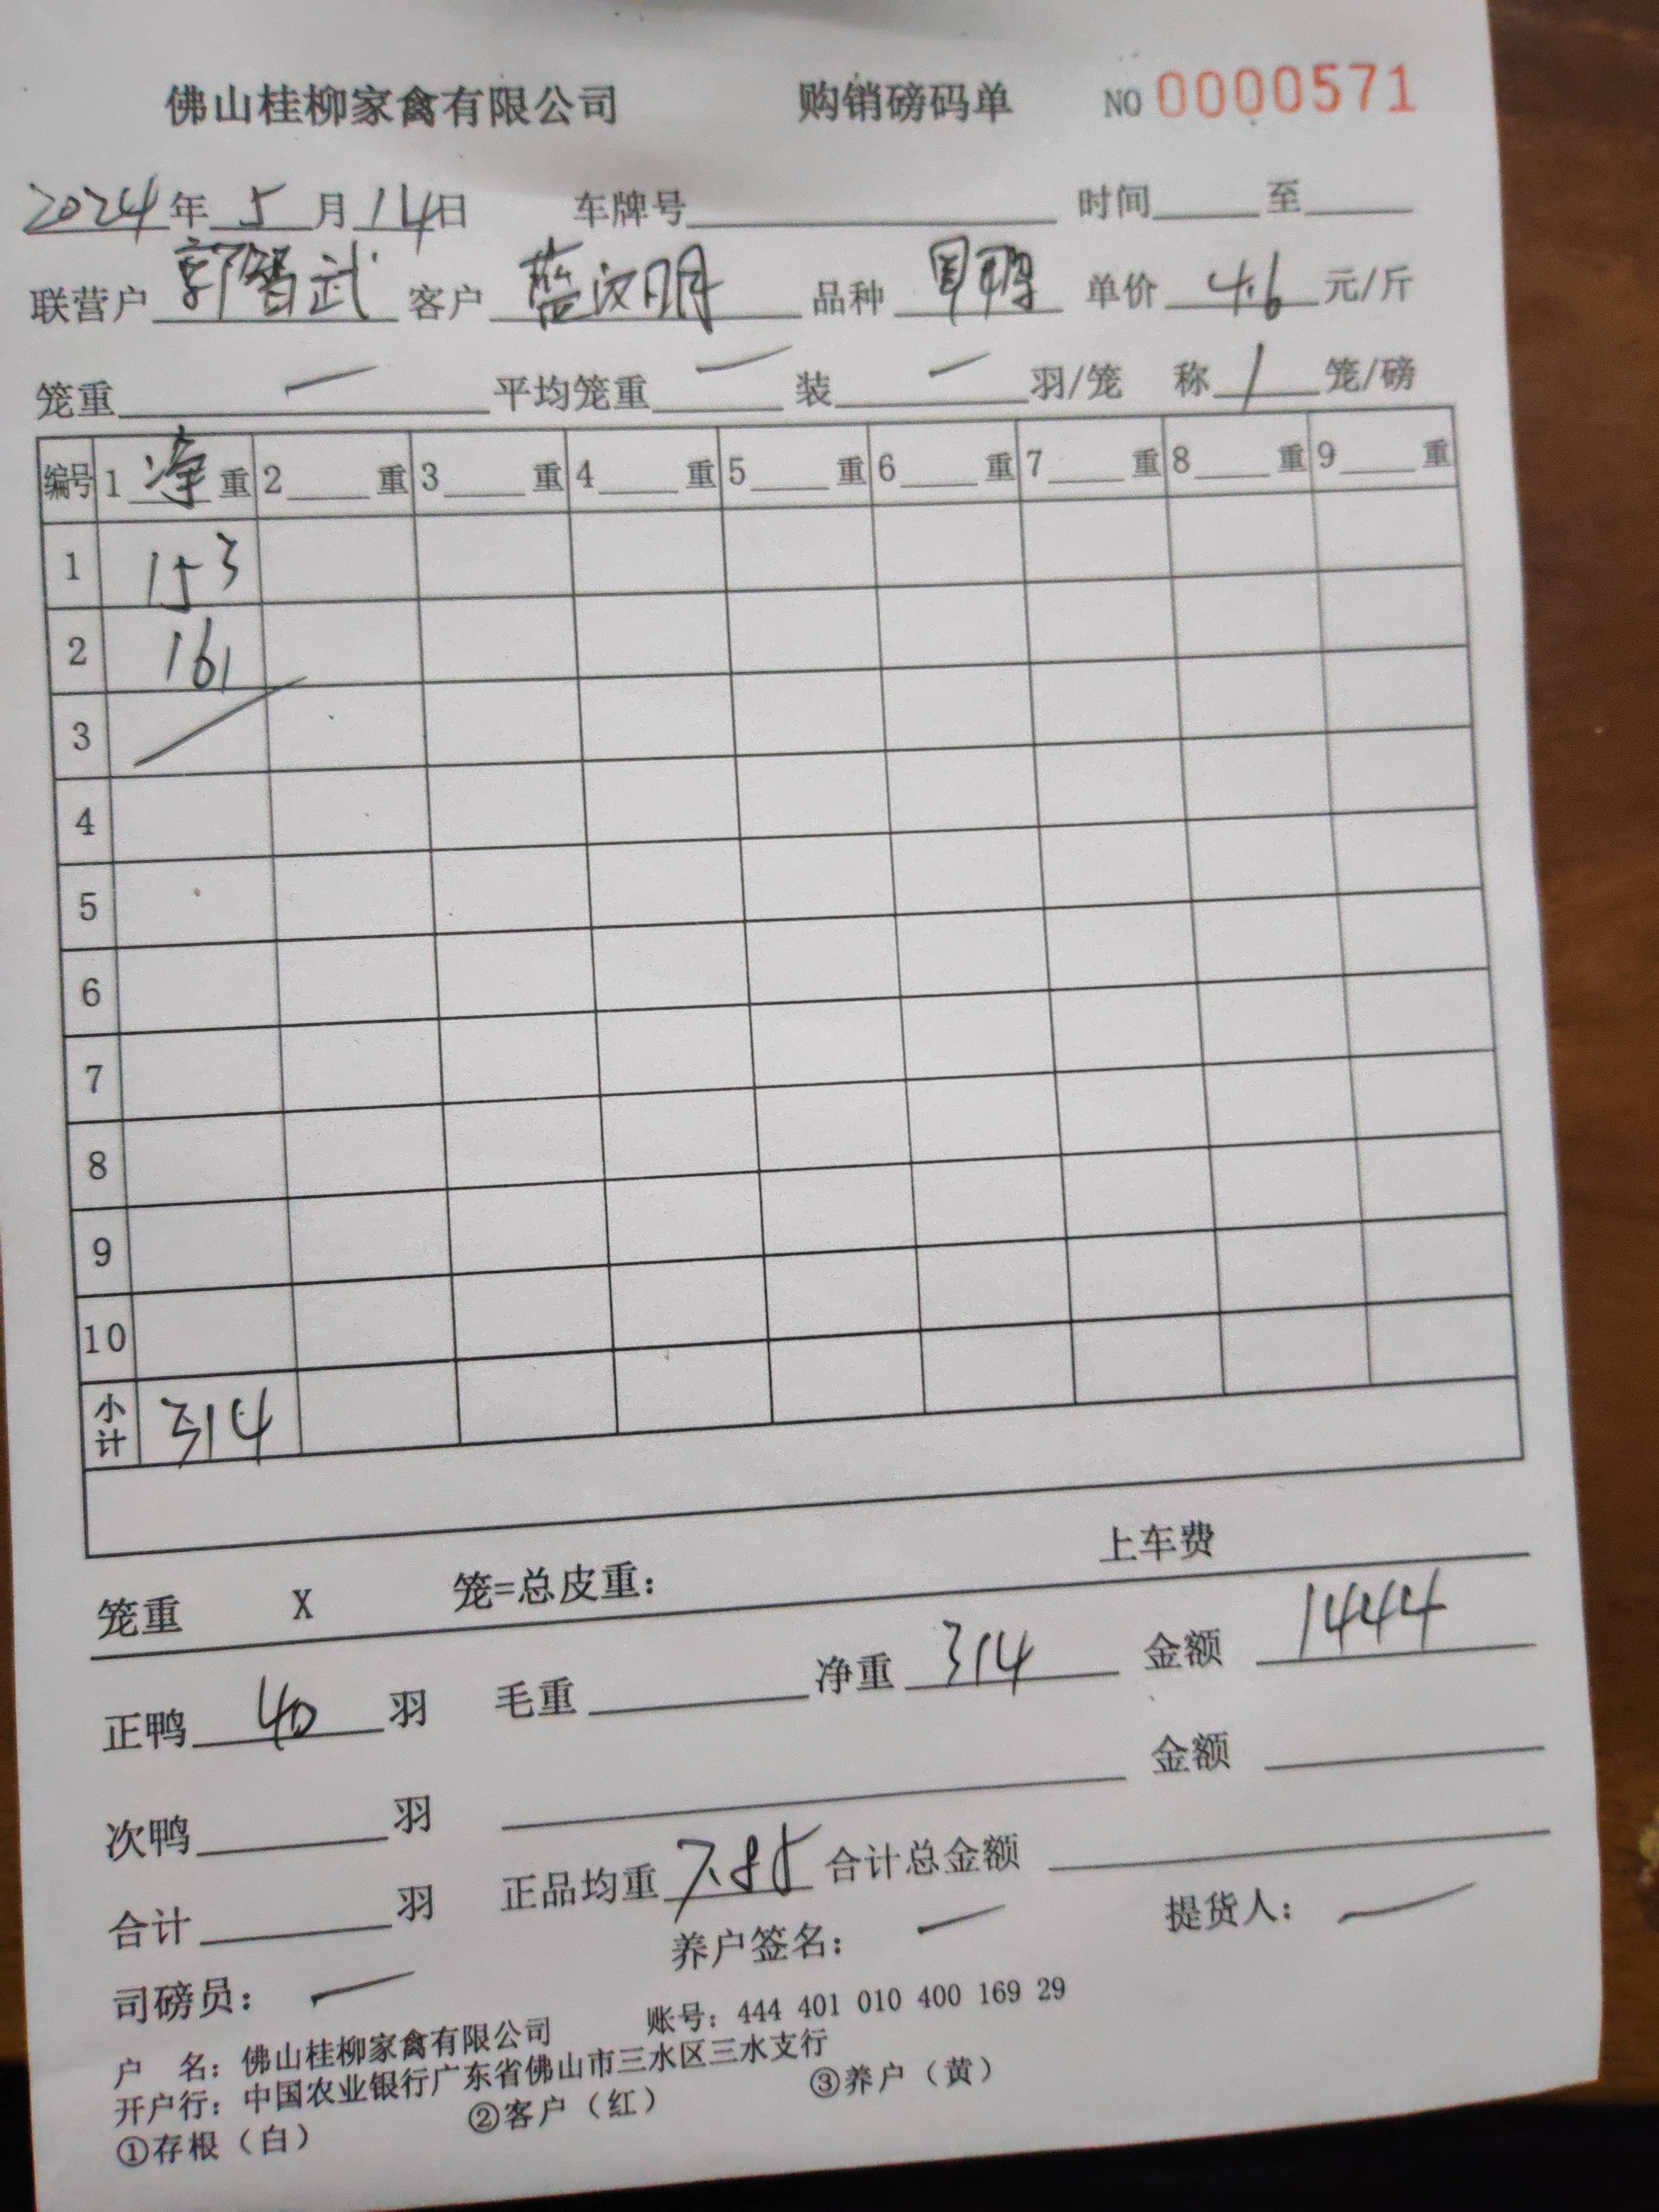 佛山桂柳家禽有限公司 购销磅码单 NO 0000571
2024年5月14日 车牌号 时间 至
联营户 郭智武 客户 蓝汉明 品种 单价 4.6 元/斤
笼重 — 平均笼重 — 装 — 羽/笼 称 1 笼/磅
编号 1 净 重 2 重 3 重 4 重 5 重 6 重 7 重 8 重 9 重
1 153
2 161
3
4
5
6
7
8
9
10
小计 314
上车费
笼重 X 笼=总皮重:
正鸭 40 羽 毛重 净重 314 金额 1444
次鸭 羽 金额
合计 羽 正品均重 7.85 合计总金额
司磅员: — 养户签名: — 提货人: —
户 名: 佛山桂柳家禽有限公司 账号: 444 401 010 400 169 29
开户行: 中国农业银行广东省佛山市三水区三水支行
①存根（白） ②客户（红） ③养户（黄）